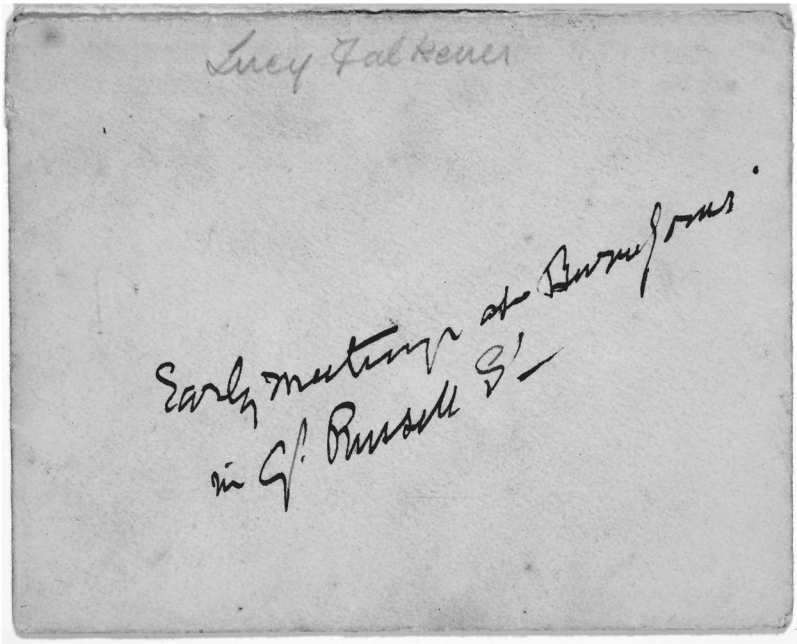 Lucy Falkener
Early meetings at Burne Jones'
in Gt. Russell St